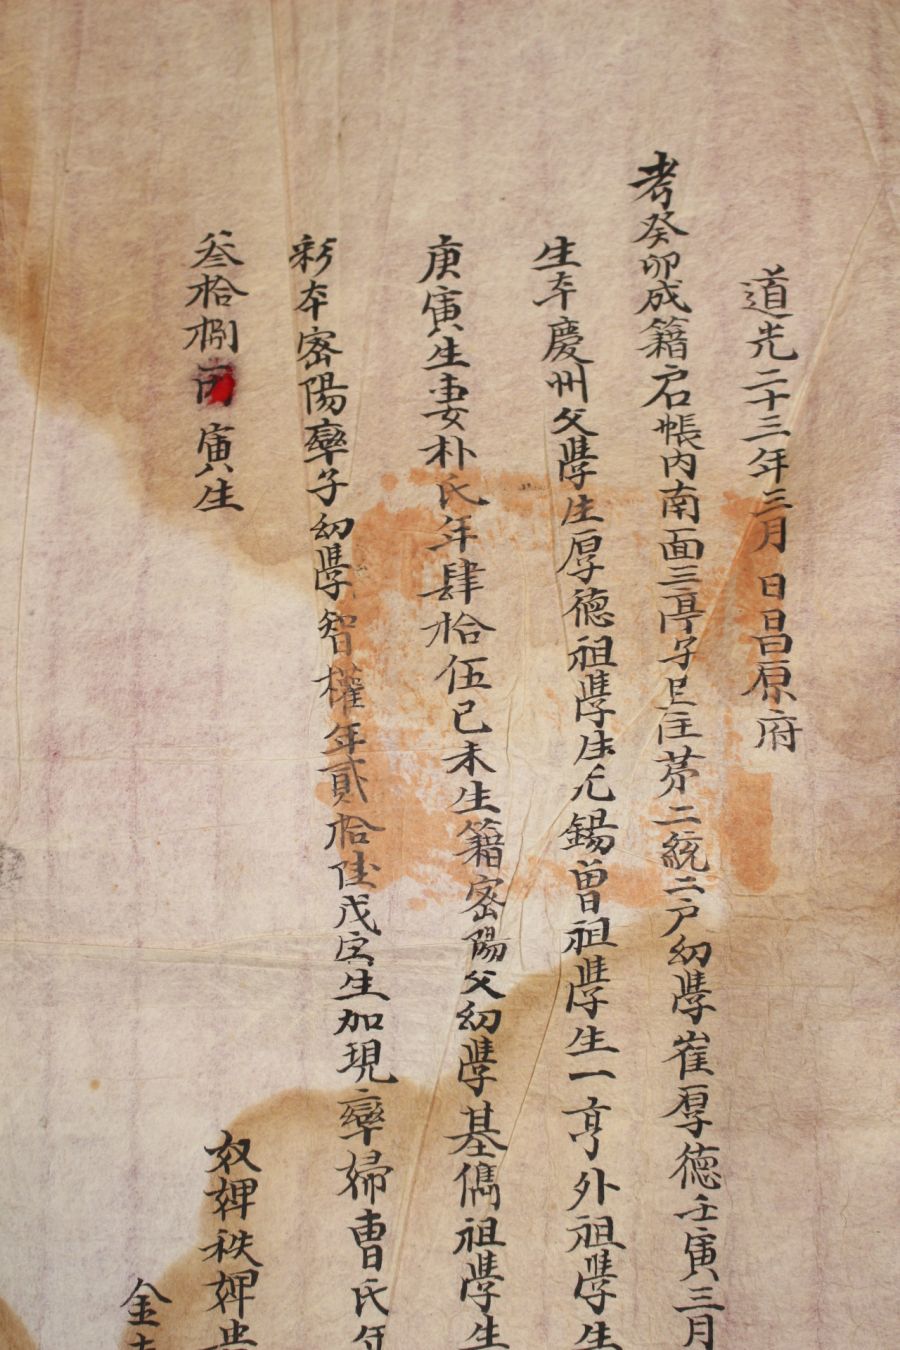 道光二十三年三月 日昌原府
考癸卯成籍戶帳内南面三亭子里住苐二統二戶幼學崔厚德壬寅三月
生本慶州父學生厚德祖學生元錫曾祖學生一亨外祖學生
庚寅生妻朴氏年肆拾伍己未生籍密陽父幼學基儁祖學生
彩本密陽率子幼學智權年貳拾陸戊寅生加現率婦曺氏年
叁拾捌丙寅生
奴婢秩婢
金